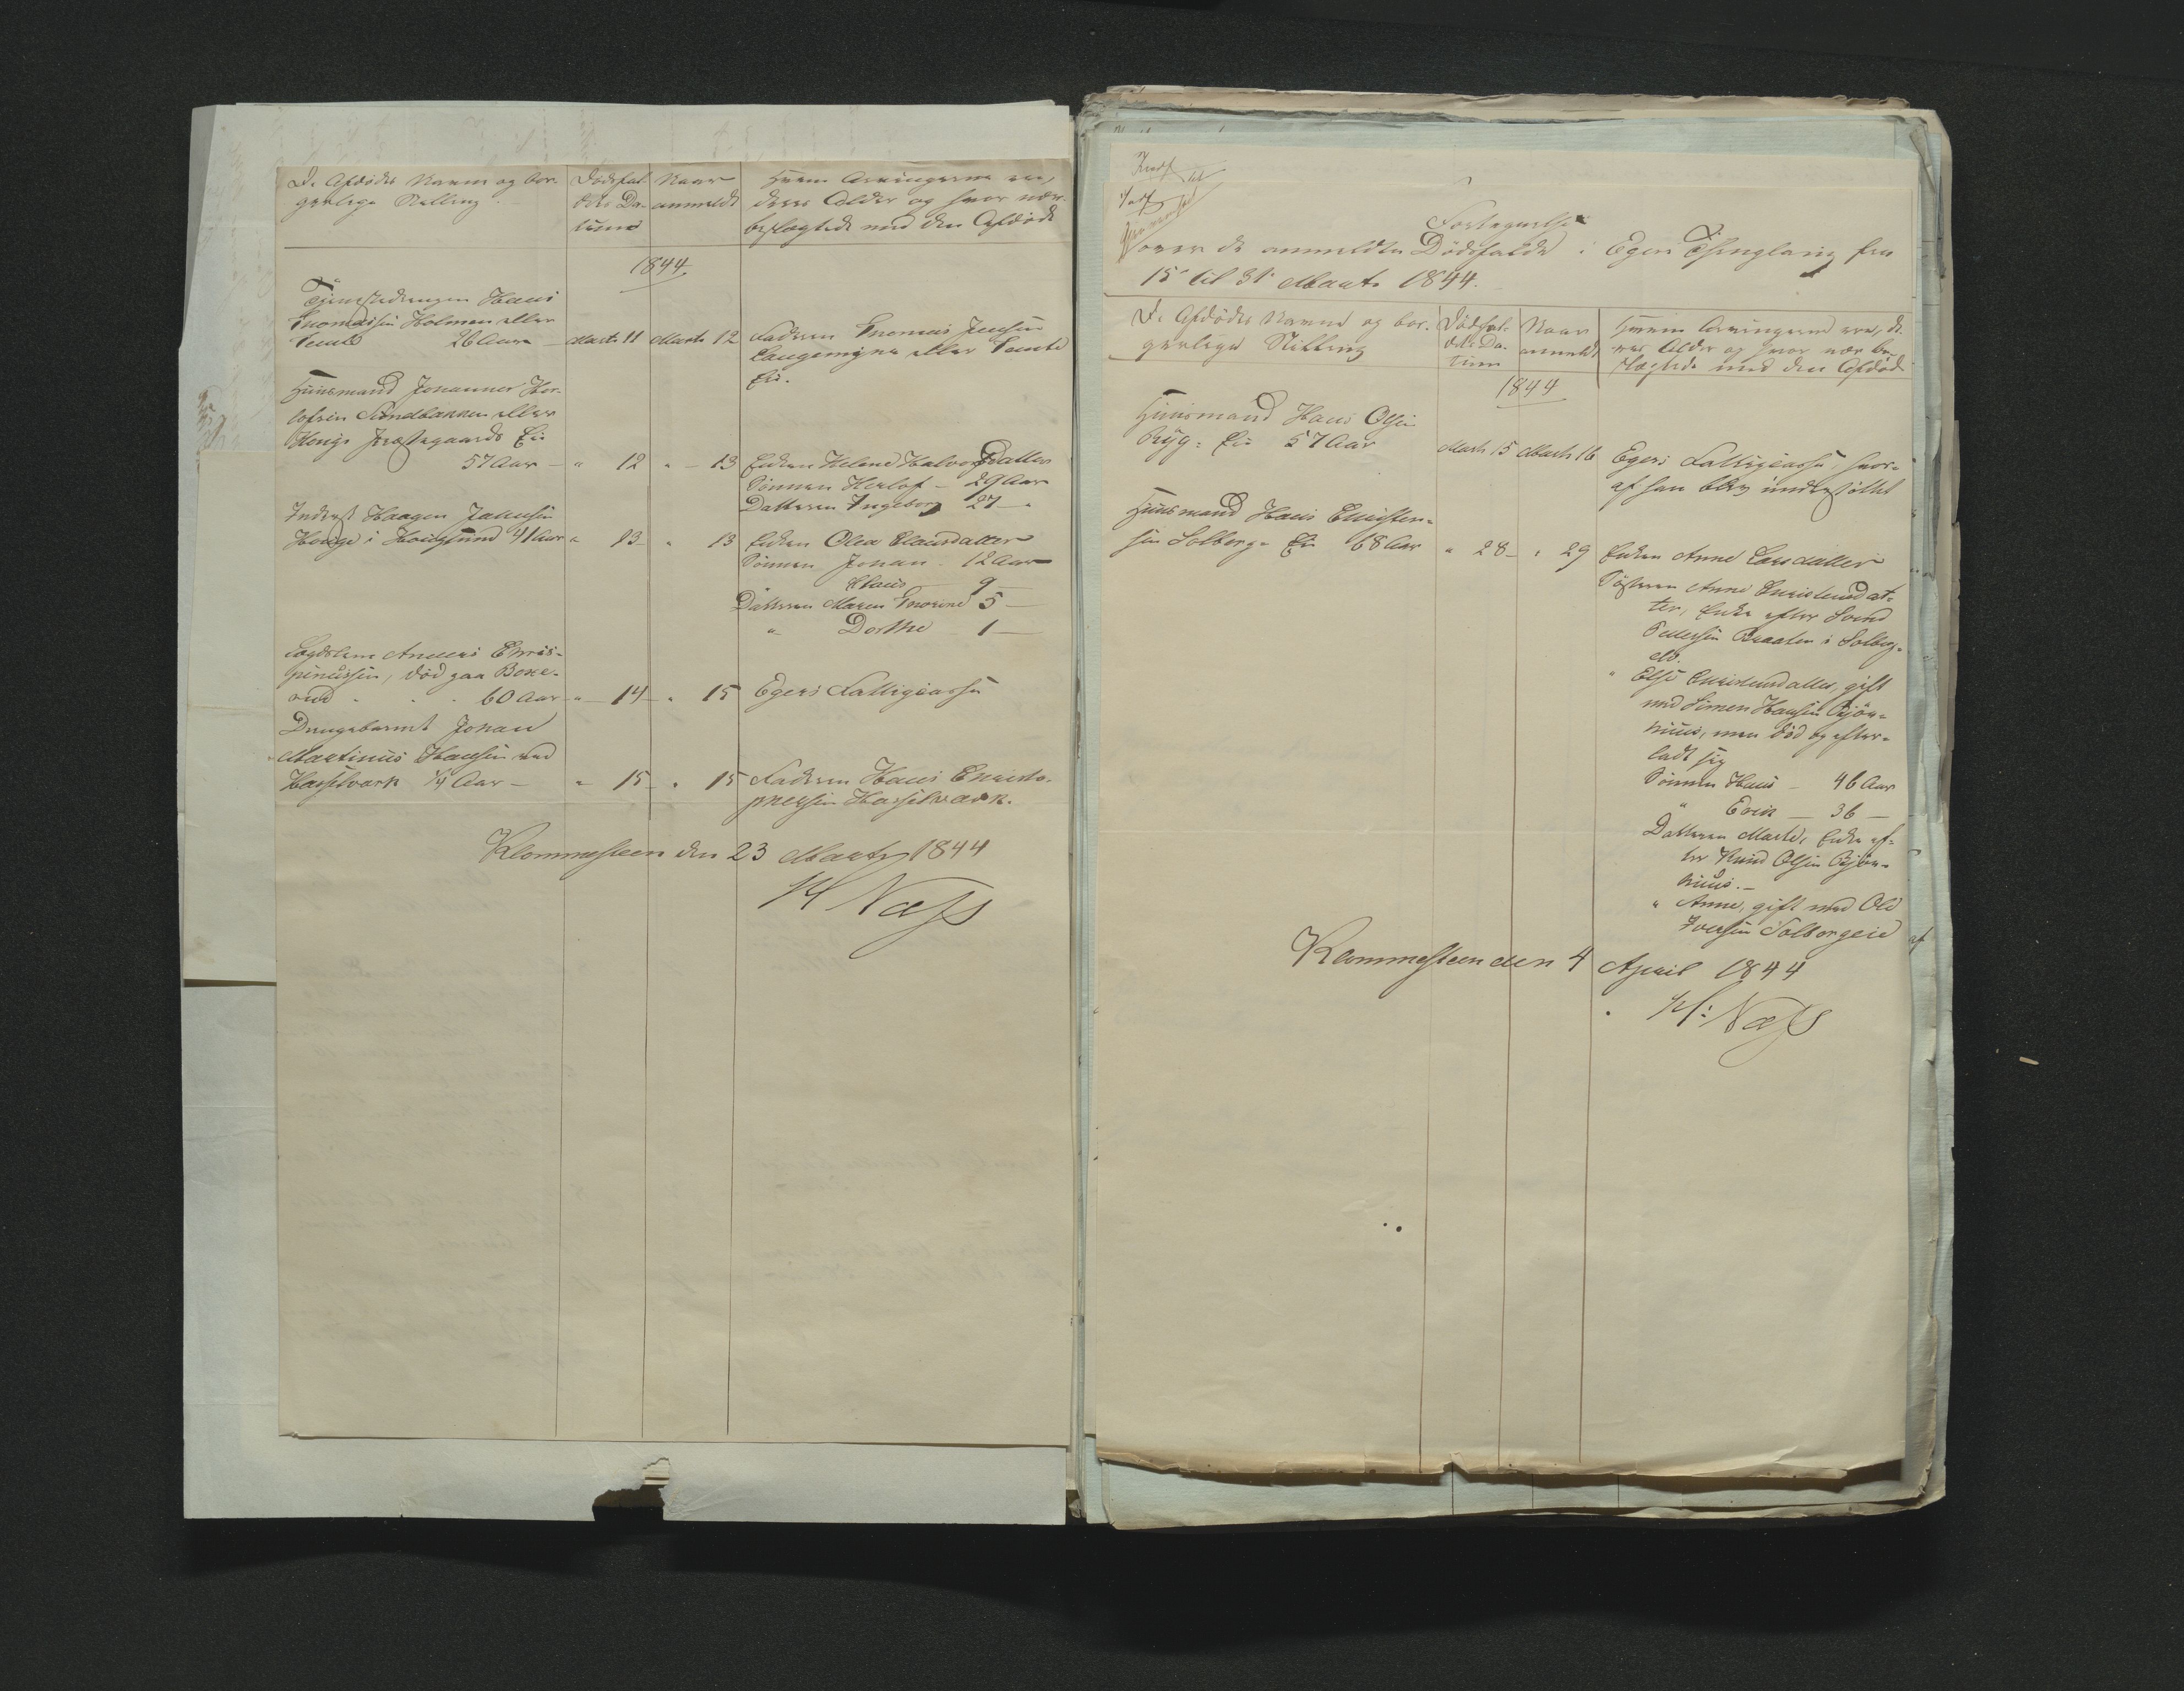 De Afdødes Navne og bor-
gerlige Stilling.
Dødsfal-
dets Da-
tum
Naar
anmeldt
Hvem Arvingerne ere,
deres Alder og hvor nær
beslægtede med den Afdøde
1844
Tjenestedrengen Hans
Thomassen Holmen eller
Temte 26 Aar - Marts 11 Marts 12 Faderen Thomas Jensen
Langemyra eller Temte
Eie.
Huusmand Johannes Her-
lofsen Sandbakken eller
Hougs Præstegaards Eie
57 Aar - " 12 " - 13 Enken Helene Halvorsdatter
Sønnen Herlof - 29 Aar
Datteren Ingeborg 27 - "
Inderst Haagen Jacobsen
Houge i Hougsund 41 Aar " 13 " 13 Enken Olea Clausdatter
Sønnen Johan - 12 Aar
" Claus - 9 -
Datteren Maren Thorine 5 -
" Dorthe - 1 -
Lægdslem Anders Chris-
pinussen, død paa Boxe-
rud . . 60 Aar " - 14 - " 15 Egers Fattigcasse
Drengebarnet Johan
Martinus Hansen ved
Hasselværk 1/4 Aar - " 15 - " 15 Faderen Hans Christo-
phersen Hasselværk.
Klommesteen den 23 Marts 1844
H Næss
Fortegnelse
over de anmeldte Dødsfalde i Egers Thinglaug fra
15de til 31te Marts 1844.
De Afdødes Navne og bor-
gerlige Stilling
Dødsfal-
dets Da-
tum
Naar
anmeldt
Hvem Arvingerne ere, de-
res Alder og hvor nær be-
slægtede med den Afdøde
1844
Huusmand Hans Olsen
Ryg- Eie 57 Aar Marts 15 Marts 16 Egers Fattigcasse, hvor-
af han blev understøttet
Huusmand Hans Christen-
sen Solberg- Eie 68 Aar " 28 - " 29 Enken Anne Larsdatter
Søsteren Anne Christensdat-
ter, Enke efter Svend
Pedersen Braaten i Solberg-
eie.
" Else Christensdatter, gift
med Simen Hansen Bjøn-
huus, men død og efter-
ladt sig
Sønnen Hans - 46 Aar
" Erik - 36 -
Datteren Marthe, Enke ef-
ter Knud Olsen Bjøn-
huus. -
" Anne, gift med Ole
Iversen Solbergeie
Klommesteen den 4 April 1844
H: Næss